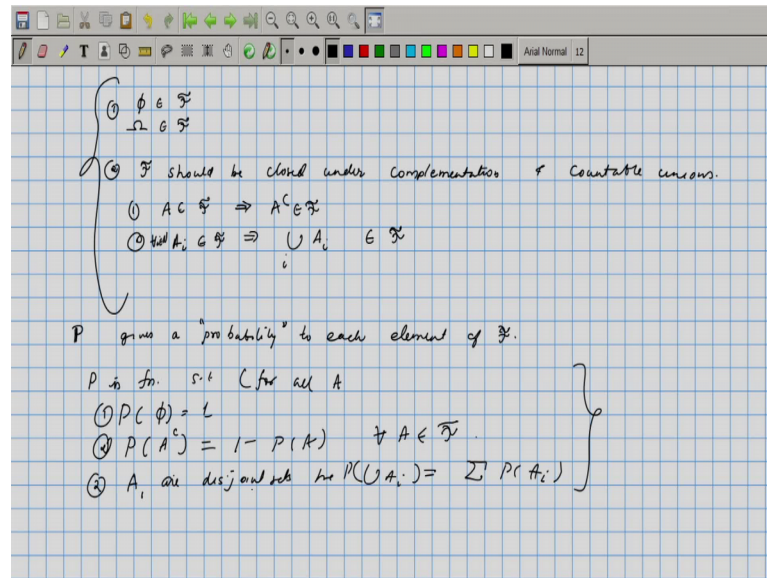 Arial Normal 12
T
① ϕ ∈ F
Ω ∈ F
② F should be closed under complementation & Countable unions.
① A ∈ F ⇒ A^c ∈ F
② A_i ∈ F ⇒ ∪_i A_i ∈ F
P gives a "probability" to each element of F.
P is fn. s.t (for all A
① P(ϕ) = 1
② P(A^c) = 1 - P(A) ∀ A ∈ F.
③ A_i are disjoint sets P(∪A_i) = Σ P(A_i)